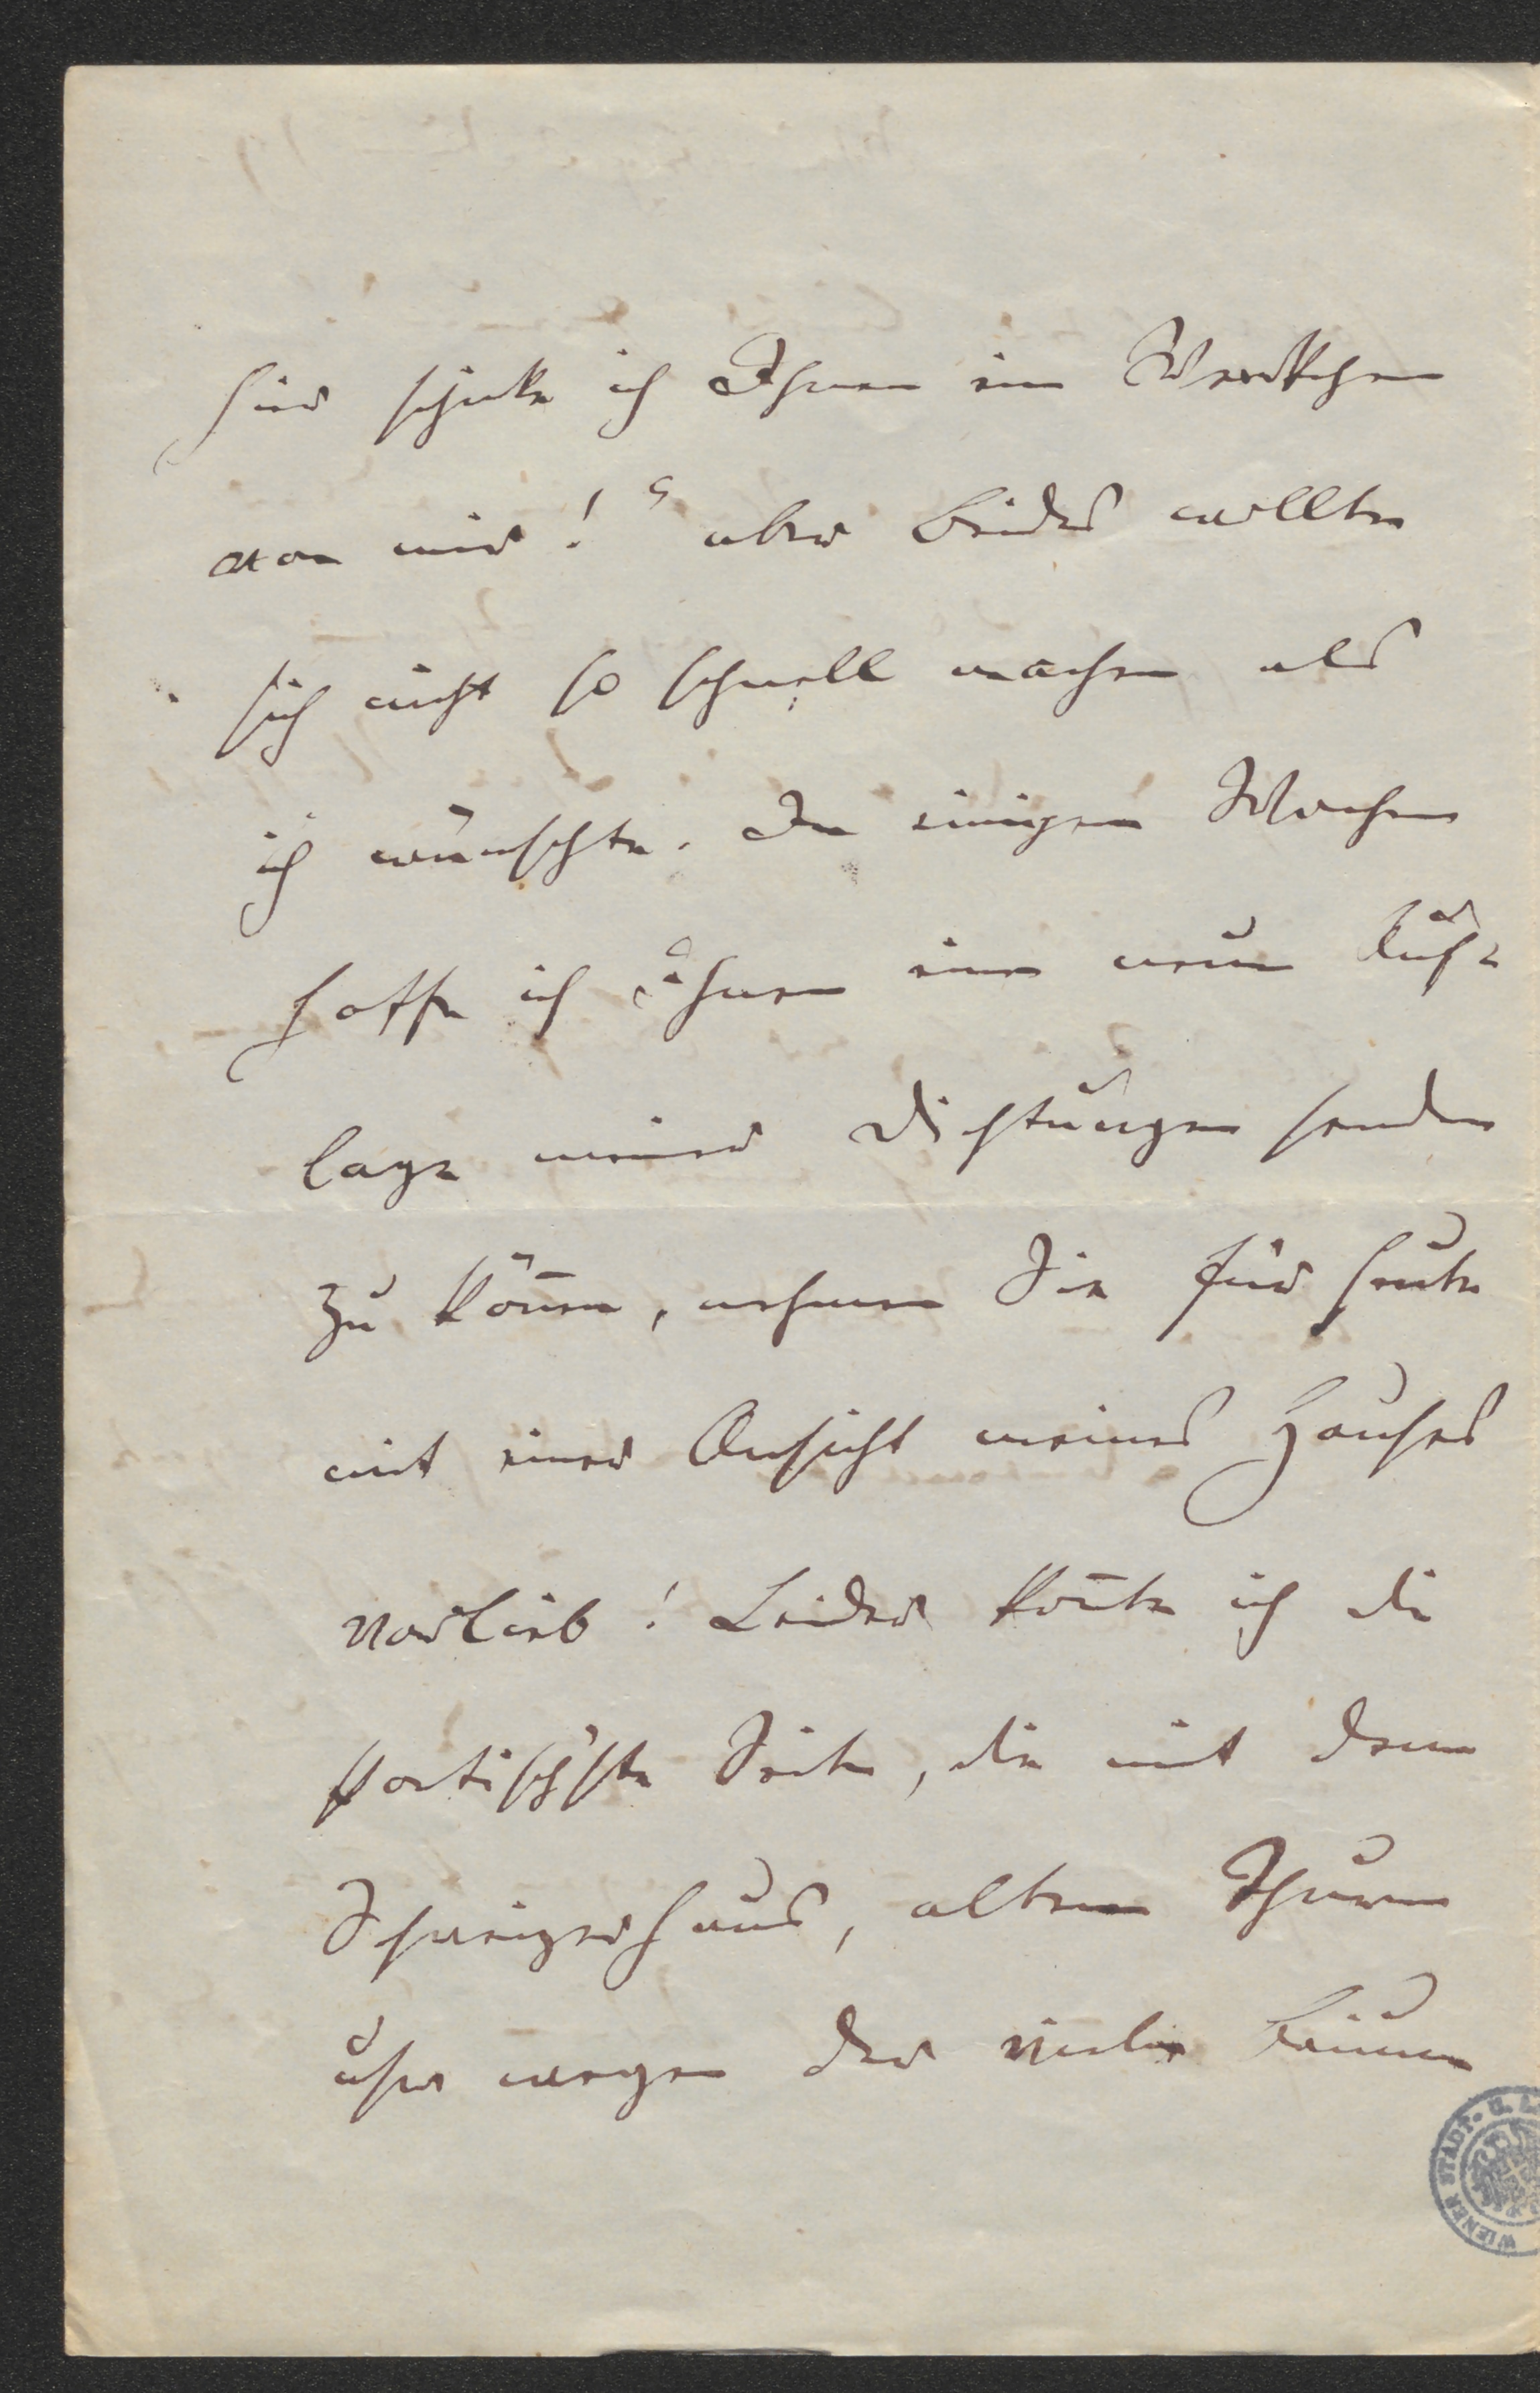 hier schicke ich Ihnen ein Werkchen
von mir!" aber beides wollte
sich nicht so schnell machen als
ich wünschte. In einigen Wochen
hoffe ich Ihnen eine neue Auf-
lage meiner Dichtungen senden
zu kön̄en, nehmen Sie für heute
mit einer Ansicht meines Hauses
vorlieb! Leider kon̄te ich die
poetischste Seite, die mit dem
Schweizerhaus, altem Thurm
usw wegen der vielen Bäume
WIENER STADT- U. L